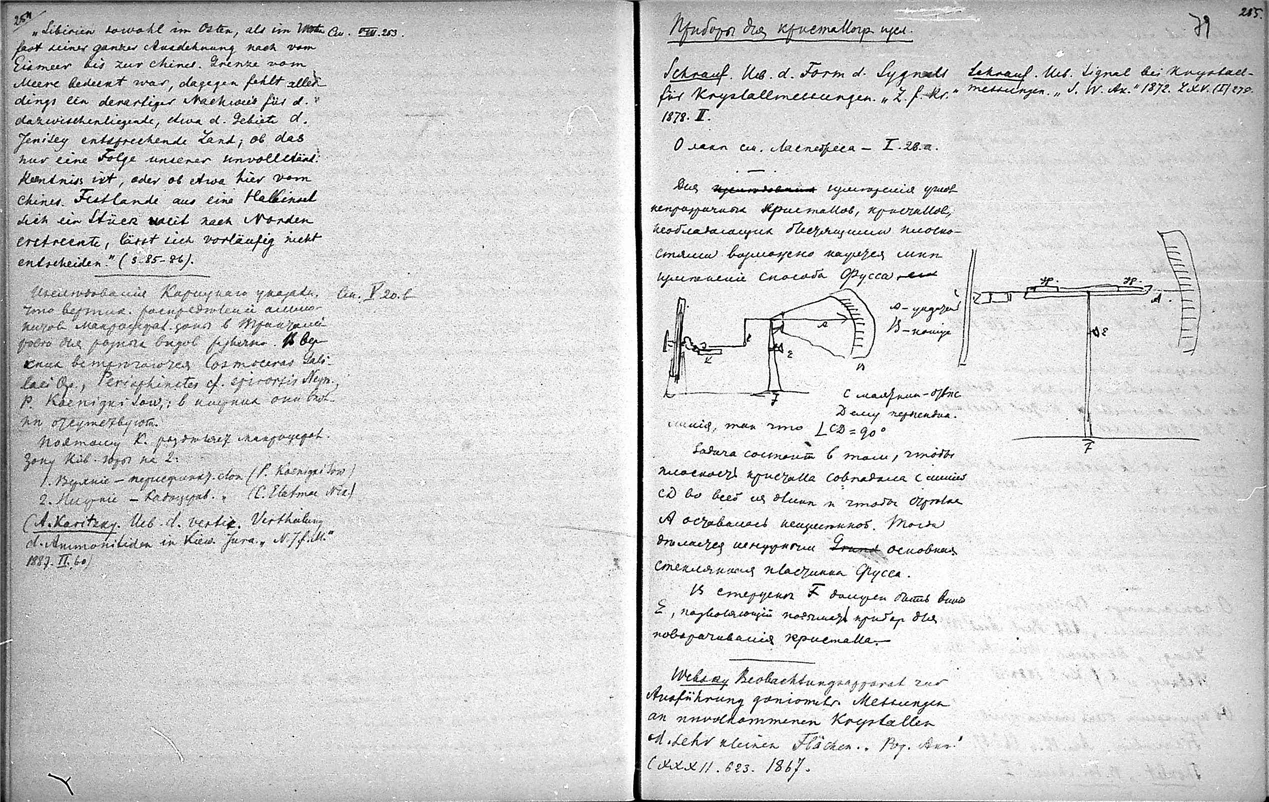 254
„Sibirien sowohl im Osten, als im Westen
fast seiner ganzen Ausdehnung nach vom
Eismeer bis zur chines. Grenze vom
Meere bedeckt war, dagegen fehlt aller-
dings ein derartiger Nachweis für d.
dazwischenliegende, etwa d. Gebiete d.
Jenissey entsprechende Land; ob das
nur eine Folge unserer unvollständ.
Kenntniss ist, oder ob etwa hier vom
chines. Festlande aus eine Halbinsel
sich ein Stück weit nach Norden
erstreckte, lässt sich vorläufig nicht
entscheiden." (S. 85-86).
См. VIII. 253.
Исследования Карицкаго указали,
что вертик. распределение аммо-
нитов Макроцефал. зоны в
для разных видов различно. В вер-
хних встречаются Cosmoceras Gali-
laei Op., Perisphinctes cf. curvicosta Neum.,
P. Koenighi Sow.; в нижних они
отсутствуют.
См. V 20. б
Поэтому К. разделяет макроцефал.
зону Киев. юры на 2:
1. Верхние – (P. Koenighi Sow.)
2. Нижние – (C. Elatmae Nik.)
(A. Karitzky. Ueb. d. vertik. Vertheilung
d. Ammonitiden in Kiew. Jura. „N. J. f. M."
1887. II. 60)
255.
79
Приборы для кристаллогр. исcл.
Schrauf. Ueb. d. Form d. Signals
für Krystallmessungen. „Z. f. Kr."
1878. II.
Schrauf. Ueb. Signal bei Krystall-
messungen. „S. W. Ak." 1872. LXV. (II) 270.
О лап см. Ласпейреса – I. 28. а.
Для измерения углов
непрозрачных кристаллов, кристаллов,
необладающих блестящими плоско-
стями возможно кажется мне
применение способа Фусса
A –
B –
K
E
F
A
B
A
E
F
C
D ему перпендик.
линия, так что ∠CD = 90°
Задача состоит в том, чтобы
плоскость кристалла совпадала с линией
CD во всей ея длине и чтобы стрелка
A оставалась неизменной. Тогда
делается основная
стеклянная пластинка Фусса.
В стержень F должен быть винт
E, позволяющий поднимать прибор для
поворачивания кристалла.
Websky Beobachtungsapparat zur
Ausführung goniometr. Messungen
an unvolkommenen Krystallen
d. sehr kleinen Flächen. „Pog. Ann."
CXXXII. 623. 1867.